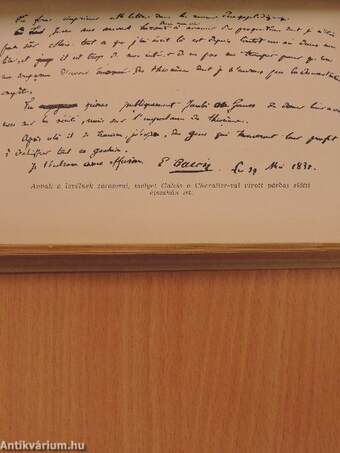 Tu feras imprimer cette lettre dans la revue encyclopédique.
Je me suis souvent hasardé dans ma vie à avancer des propositions dont je n'étais
pas sûr. Mais tout ce que j'ai écrit là est depuis bientôt un an dans ma
tête, et il est trop de mon intérêt de ne pas me tromper pour qu'on
me soupçonne d'avoir énoncé des théorèmes dont je n'aurais pas la démonstration
complète.
Tu prieras publiquement Jacobi ou Gauss de donner leur avis
non sur la vérité, mais sur l'importance des théorèmes.
Après cela il se trouvera, j'espère, des gens qui trouveront leur profit
à déchiffrer tout ce gachis.
Je t'embrasse avec effusion. E Galois Le 29 Mai 1832.
Annak a levélnek zárósorai, melyet Galois a Chevalier-val vívott párbaj előtti
éjszakán írt.
Antikvárium.hu